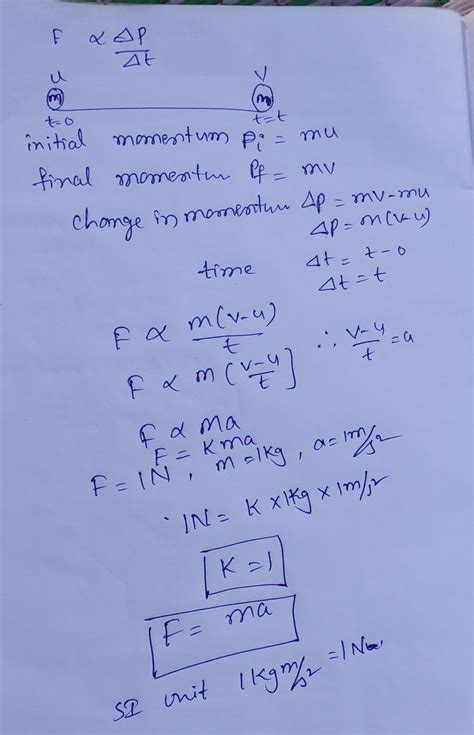 F ∝ ΔP/Δt
u v
m m
t=0 t=t
initial momentum Pi = mu
final momentum Pf = mv
change in momentum ΔP = mv-mu
ΔP = m(v-u)
time Δt = t-0
Δt = t
F ∝ m(v-u)/t
F ∝ m(v-u/t] ∴ v-u/t = a
F ∝ ma
F = Kma
F = 1N, m=1kg, a=1m/s2
1N = K x 1kg x 1m/s2
K=1
F = ma
SI unit 1kgm/s2 = 1N